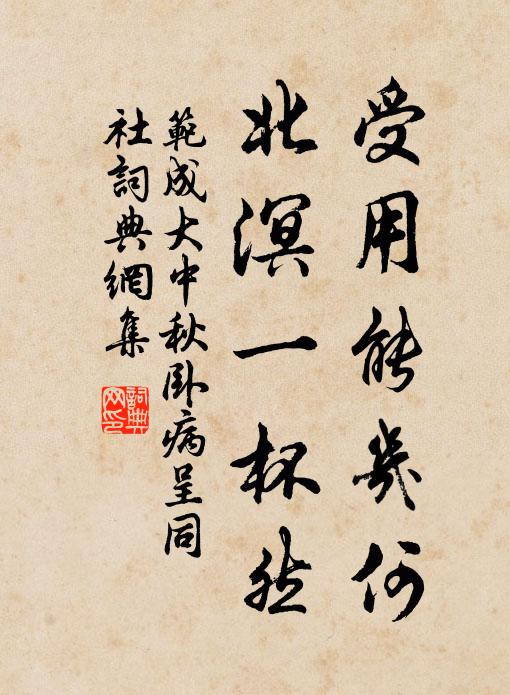 受用能幾何
北溟一杯然
範成大中秋卧病呈同
社詞典網集
詞典
网印